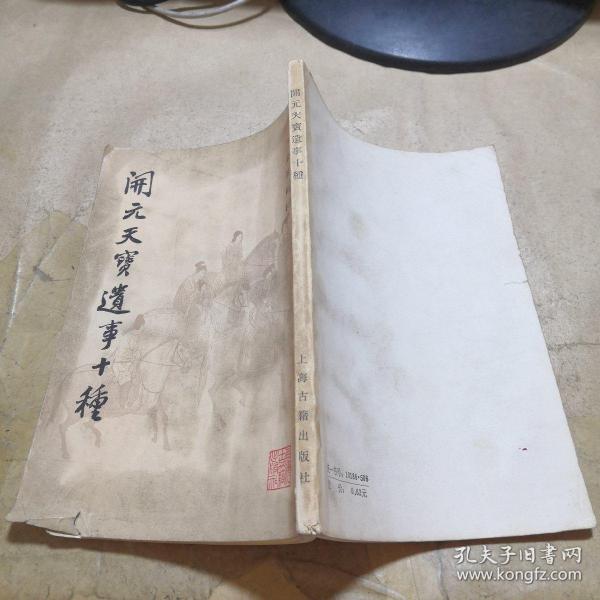 開元天寶遺事十種
開元天寶遺事十種
上海古籍出版社
10186·586
0.62元
孔夫子旧书网
www.kongfz.com